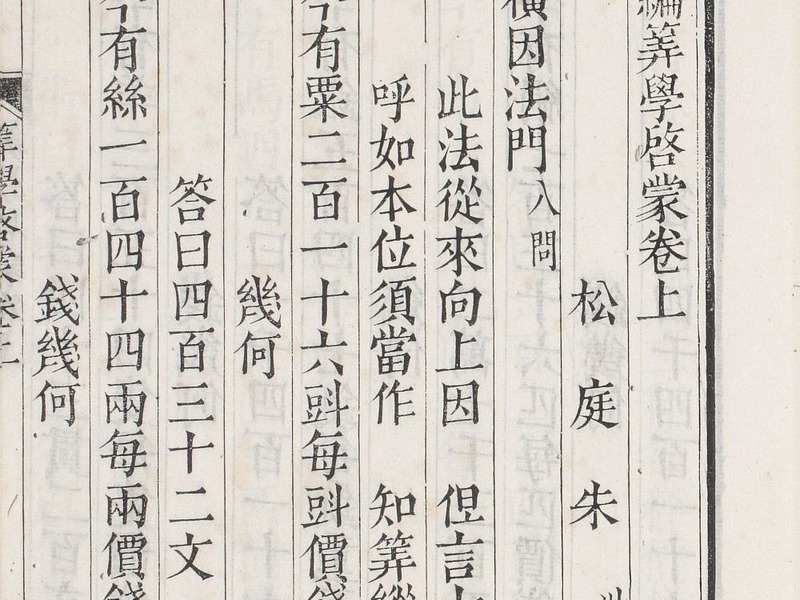 編筭學啓蒙卷上
松庭朱
橫因法門八問
此法從來向上因 但言
呼如本位須當作 知筭
今有粟二百一十六㪷每㪷價錢
幾何
答曰四百三十二文
今有絲一百四十四兩每兩價錢
錢幾何
筭學啓蒙卷上